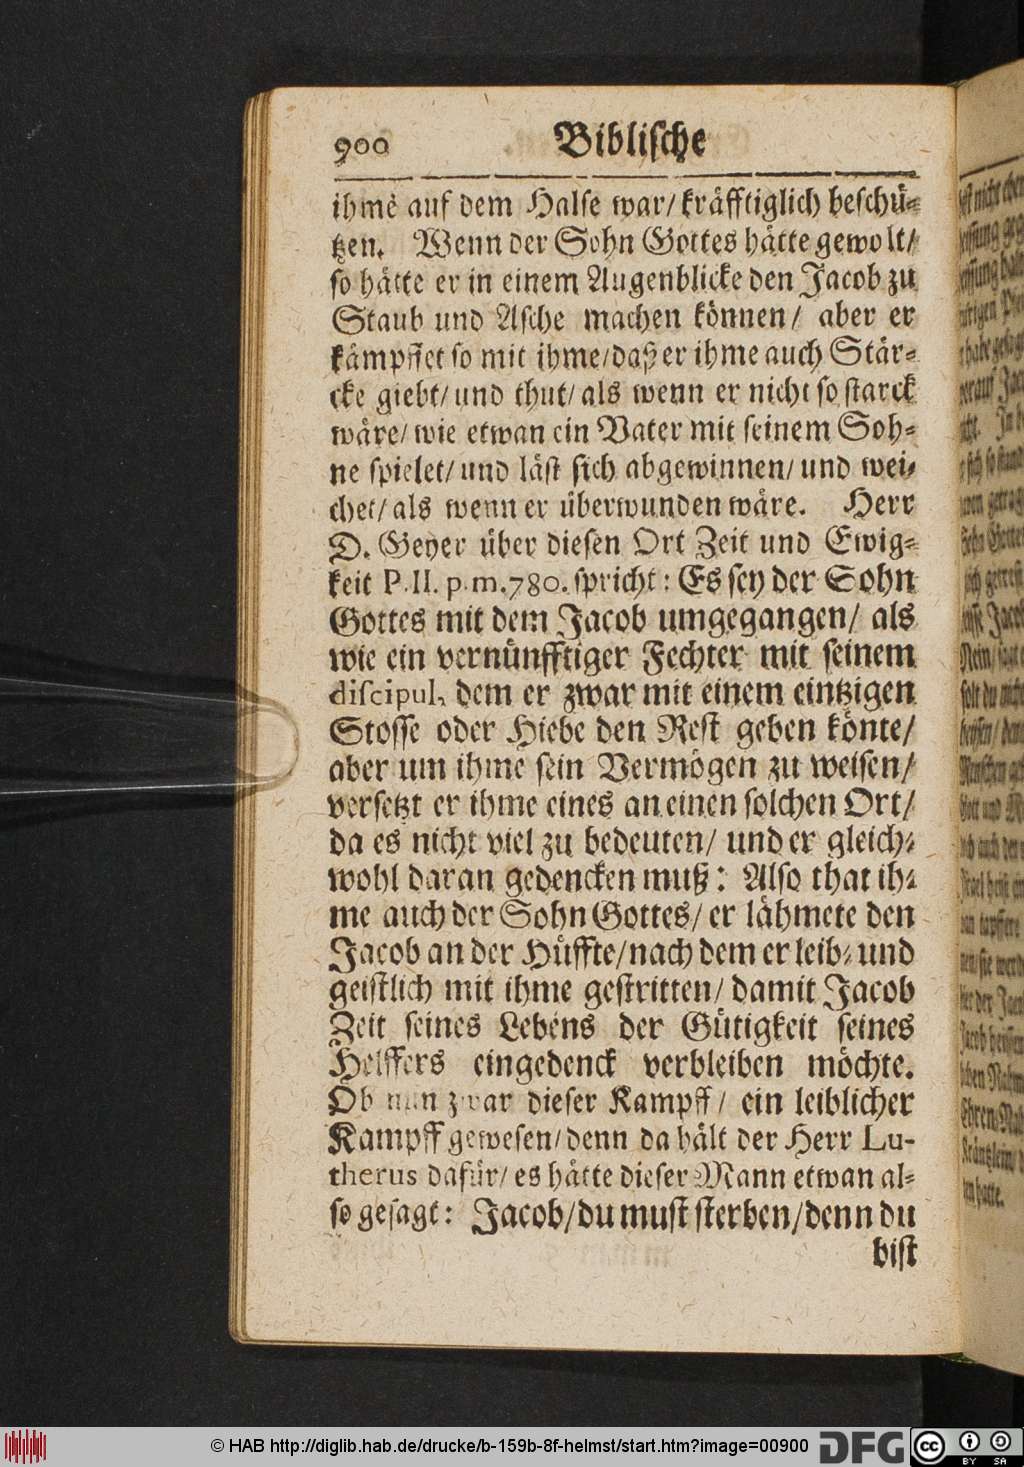 900 Biblische
ihme auf dem Halse war/ kräfftiglich beschü-
tzen. Wenn der Sohn Gottes hätte gewolt/
so hätte er in einem Augenblicke den Jacob zu
Staub und Asche machen können/ aber er
kämpffet so mit ihme/ daß er ihme auch Stär-
cke giebt/ und thut/ als wenn er nicht so starck
wäre/ wie etwan ein Vater mit seinem Soh-
ne spielet/ und läst sich abgewinnen/ und wei-
chet/ als wenn er überwunden wäre. Herr
D. Geyer über diesen Ort Zeit und Ewig-
keit P. II. p. m. 780. spricht: Es sey der Sohn
Gottes mit dem Jacob umgegangen/ als
wie ein vernünfftiger Fechter mit seinem
discipul, dem er zwar mit einem eintzigen
Stosse oder Hiebe den Rest geben könte/
aber um ihme sein Vermögen zu weisen/
versetzt er ihme eines an einen solchen Ort/
da es nicht viel zu bedeuten/ und er gleich-
wohl daran gedencken muß: Also that ih-
me auch der Sohn Gottes/ er lähmete den
Jacob an der Hüffte/ nach dem er leib- und
geistlich mit ihme gestritten/ damit Jacob
Zeit seines Lebens der Gütigkeit seines
Helffers eingedenck verbleiben möchte.
Ob nun zwar dieser Kampff/ ein leiblicher
Kampff gewesen/ denn da hält der Herr Lu-
therus dafür/ es hätte dieser Mann etwan al-
so gesagt: Jacob/ du must sterben/ denn du
bist
© HAB http://diglib.hab.de/drucke/b-159b-8f-helmst/start.htm?image=00900
DFG
cc
BY SA